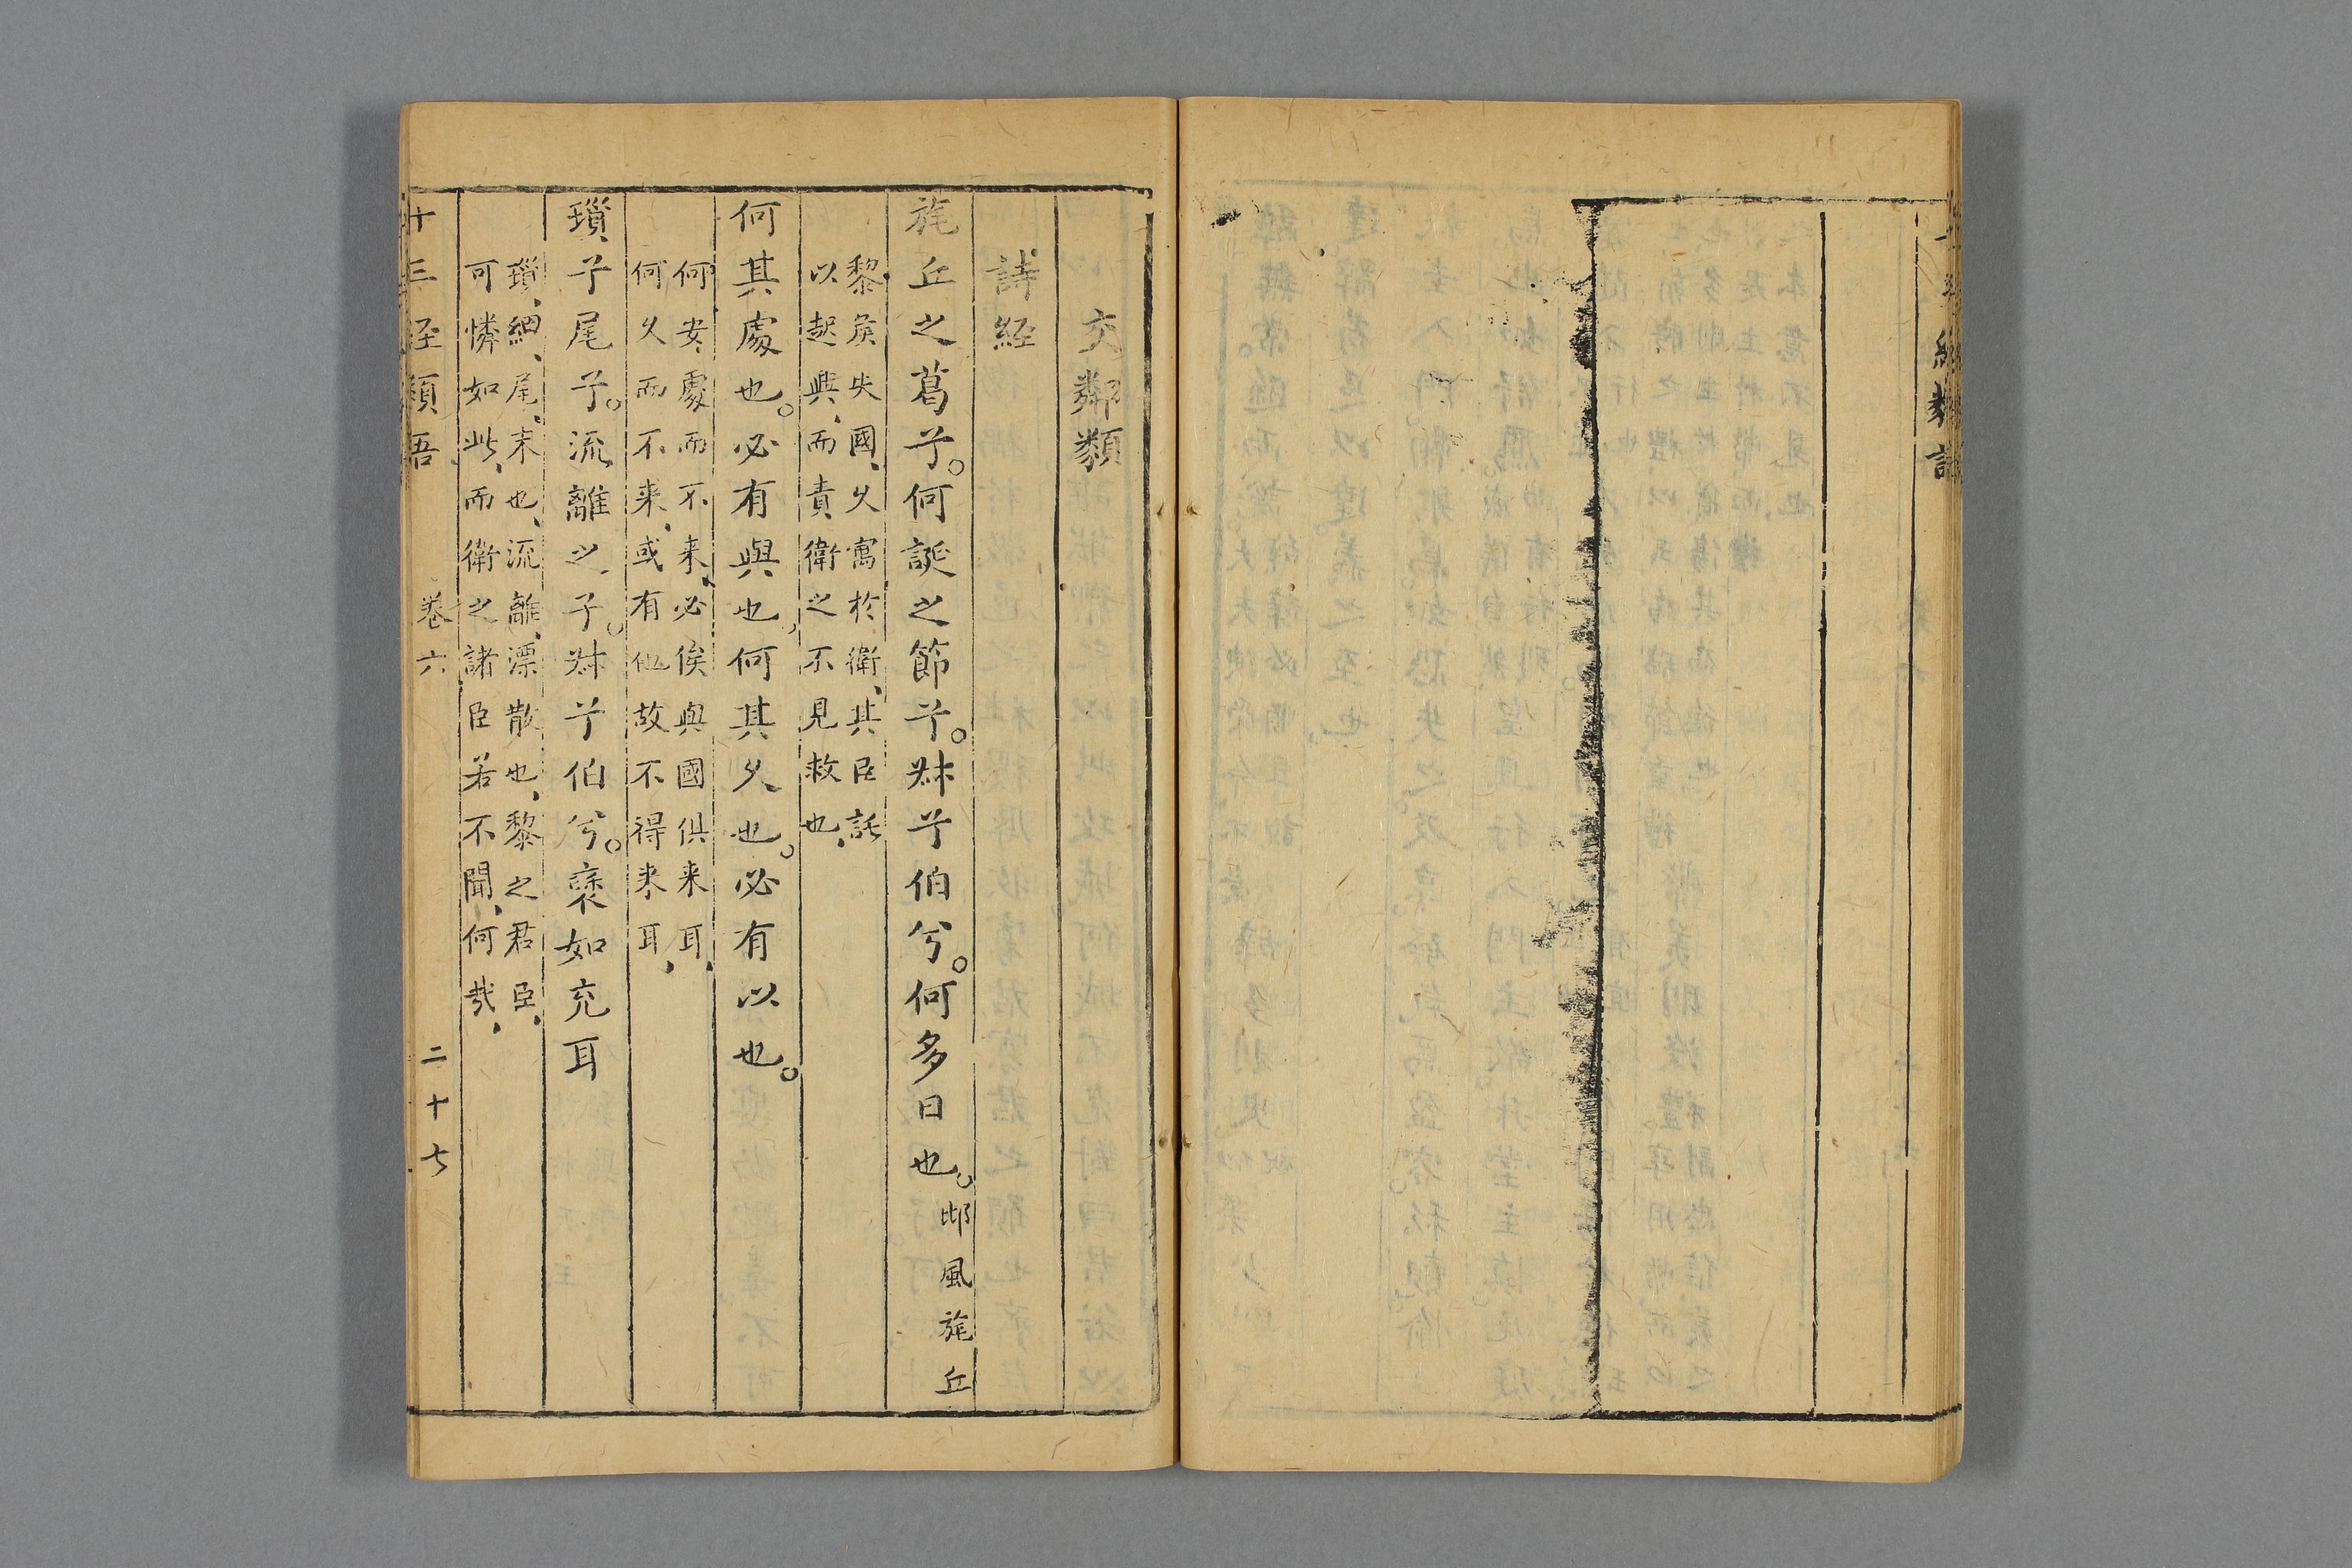 交鄰類
詩經
旄丘之葛兮。何誕之節兮。叔兮伯兮。何多日也。邶風旄丘
黎侯失國、乆寓於衛、其臣託
以起興、而責衛之不見救也、
何其處也。必有與也。何其乆也。必有以也。
何、安、處而不来、必俟與國俱来耳、
何乆而不来、或有他故不得来耳、
瑣兮尾兮。流離之子。叔兮伯兮。褎如充耳
瑣、細、尾、末也、流離、漂散也、黎之君臣、
可憐如此、而衛之諸臣若不聞、何哉、
十三經類語 卷六 二十七